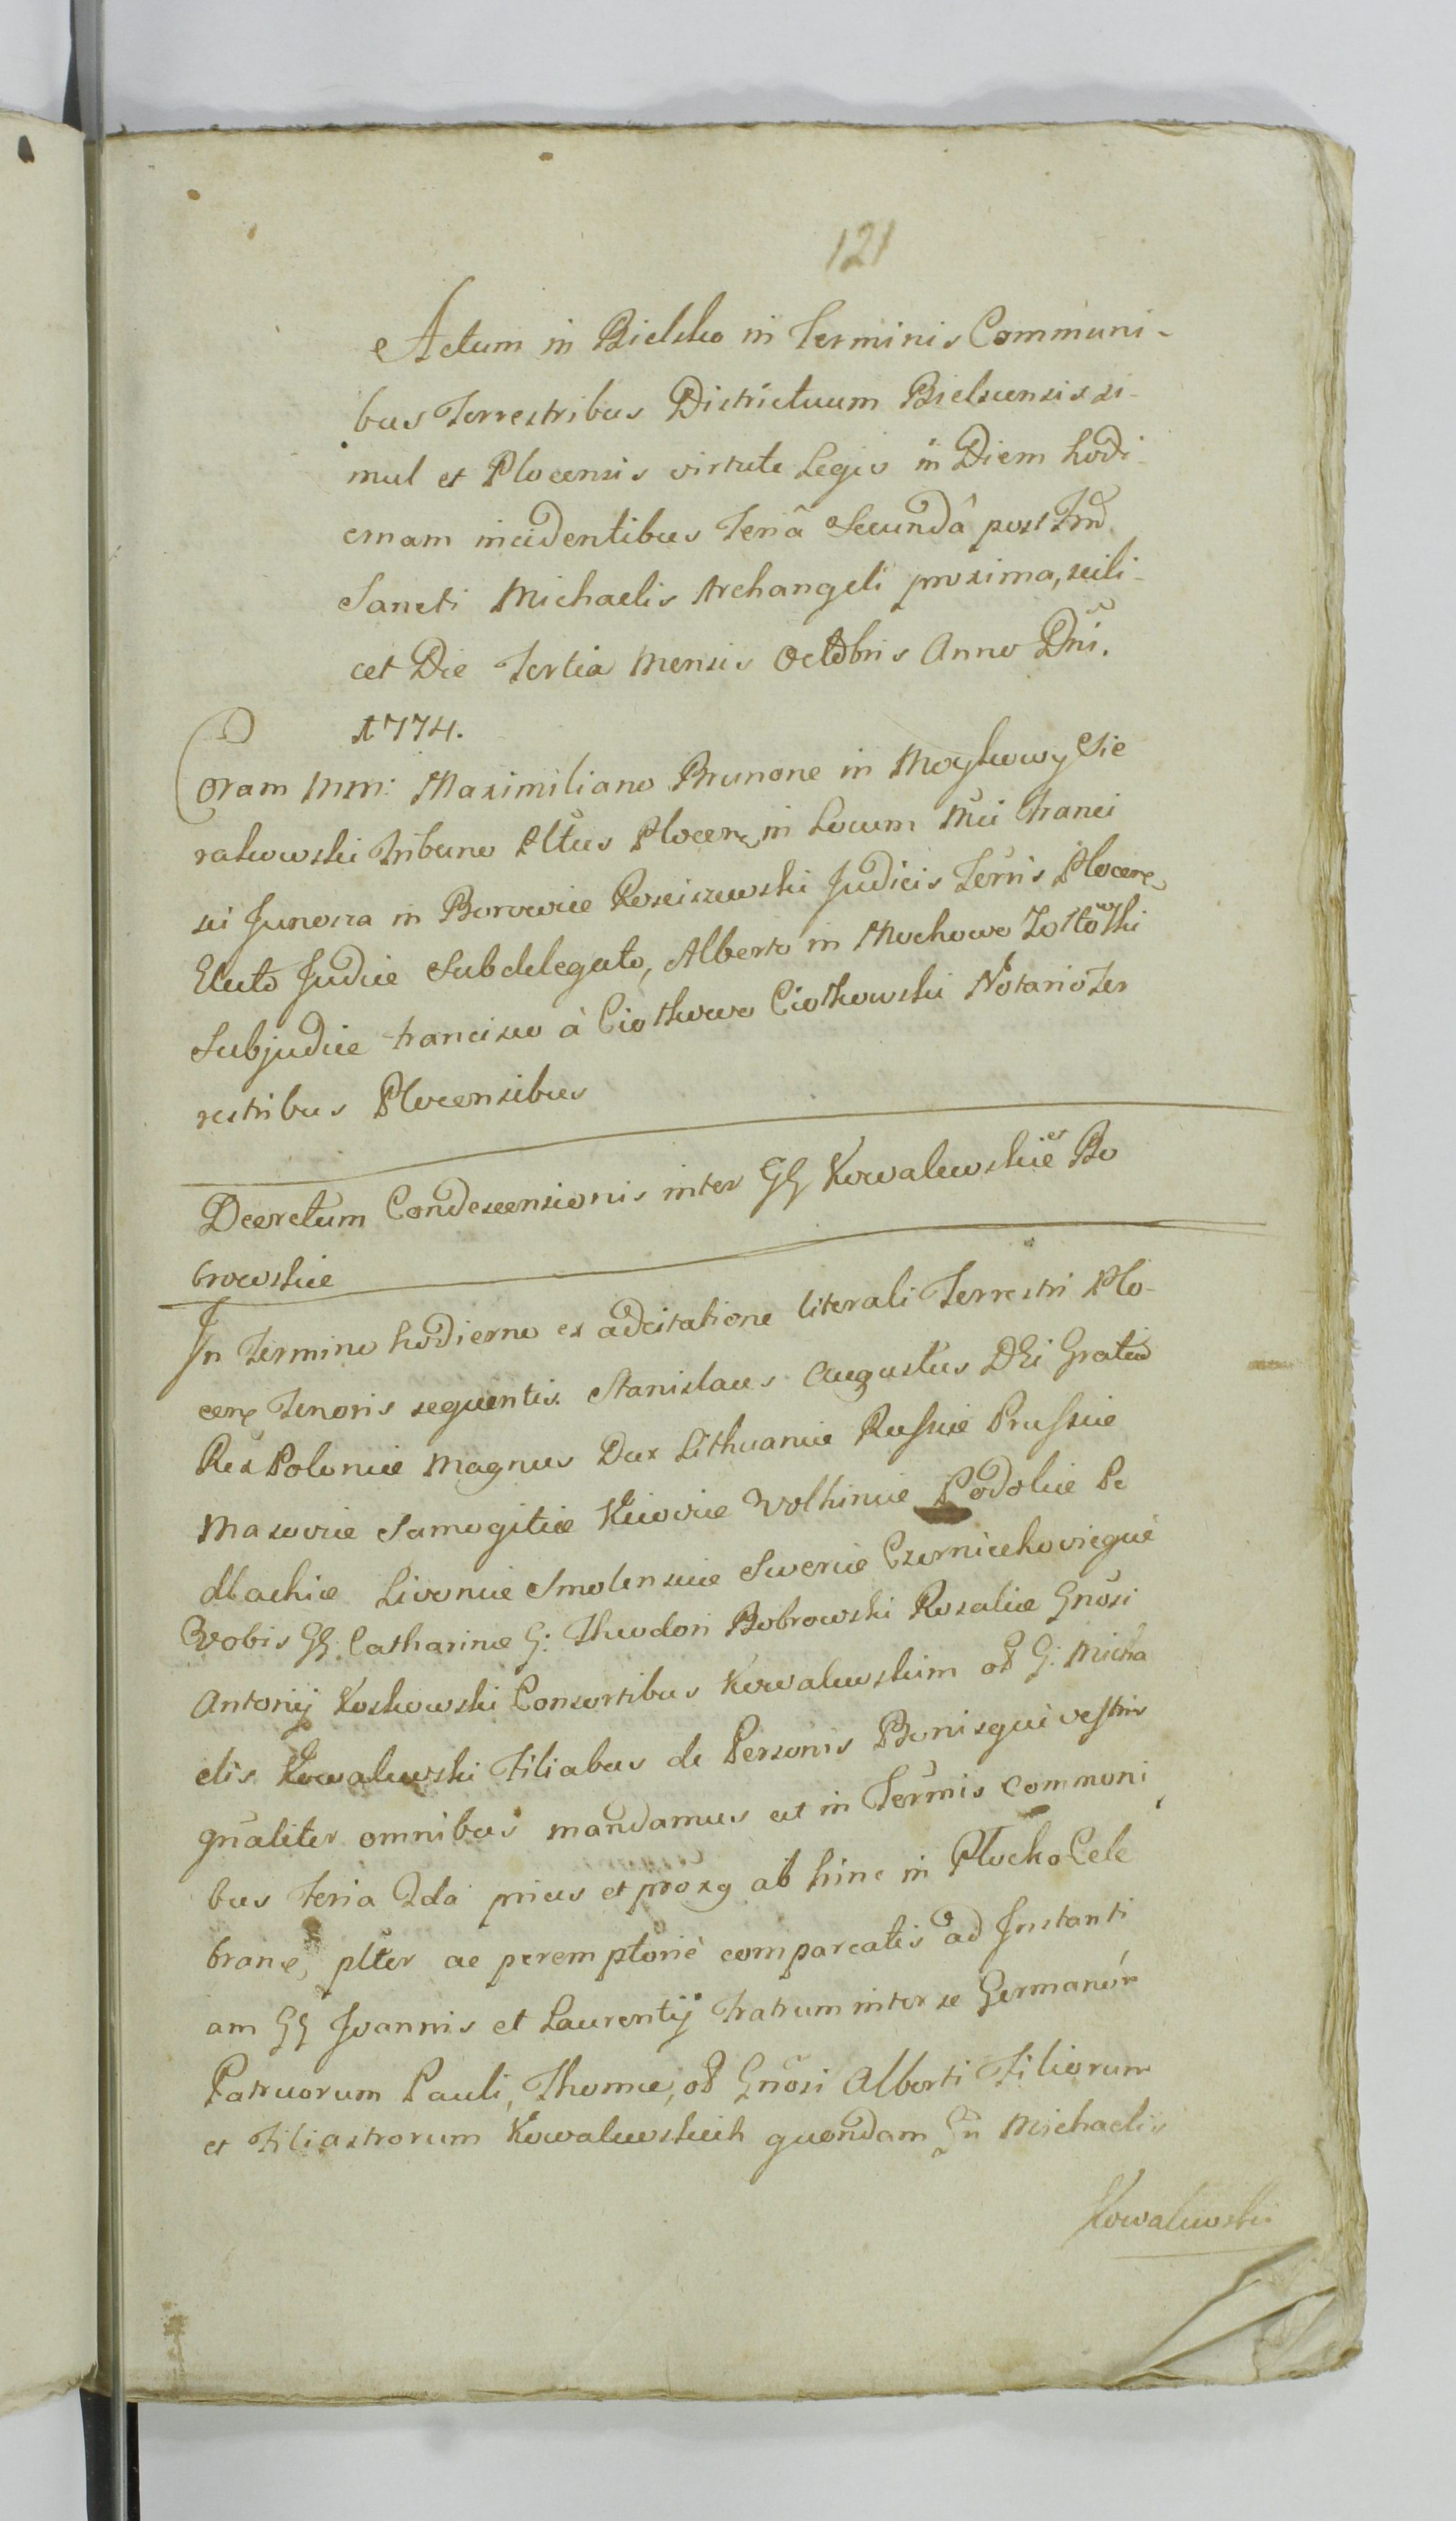 121
Actum in Bielsko in Terminis Communi-
bus Terrestribus Districtuum Bielscensis si-
mul et Plocensis virtute Legis in Diem hodi-
ernam incidentibus Feriâ Secundâ post Fm̃
Sancti Michaelis Archangeli proxima, scili-
cet Die Tertia Mensis Octobris Anno Dñi.
1774.
Coram Mm: Maximiliano Brunone in Moykowy Sie
rakowski Tribuno Altûs Plocen, in Locum Mci Franci
sci Junosza in Borowice Rosciszewski Judicis Terris Plocen
Electo Judice Subdelegato, Alberto in Mochowo Zoltowski
Subjudice Francisco à Ciołkowo Ciołkowski Notario Ter
restribus Plocensibus
Decretum Condescensionis inter GG Kowalewskie et Bo
browskie
In Termino hodierno ex adcitatione literali Terrestri Plo-
cen Tenoris sequentis. Stanislaus Augustus DEi Gratia
Rex Poloniæ Magnus Dux Lithuaniæ Russiæ Prussiæ
Masoviæ Samogitiæ Kiioviæ Volhiniæ Podoliæ Po
dlachiæ Livoniæ Smolensciæ Severiæ Czerniechoviæquè
Vobis GG. Catharinæ G: Theodori Bobrowski Rosaliæ Gnosi
Antonij Koskowski Consortibus Kowalewskim oł G. Micha
elis Kowalewski Filiabus de Personis Bonisquè vestris
gñaliter omnibus mandamus ut in Termis Communi
bus Feria 2da prius et proxq ab hinc in Płocko Cele
bran, plter ac peremptoriè compareatis ad Instanti
am GG Joannis et Laurentij Fratrum inter se Germanor
Patruorum Pauli, Thomæ, oł Gnosi Alberti Filiorum
et Filiastrorum Kowalewskich quondam Gn Michaelis
Kowalewski